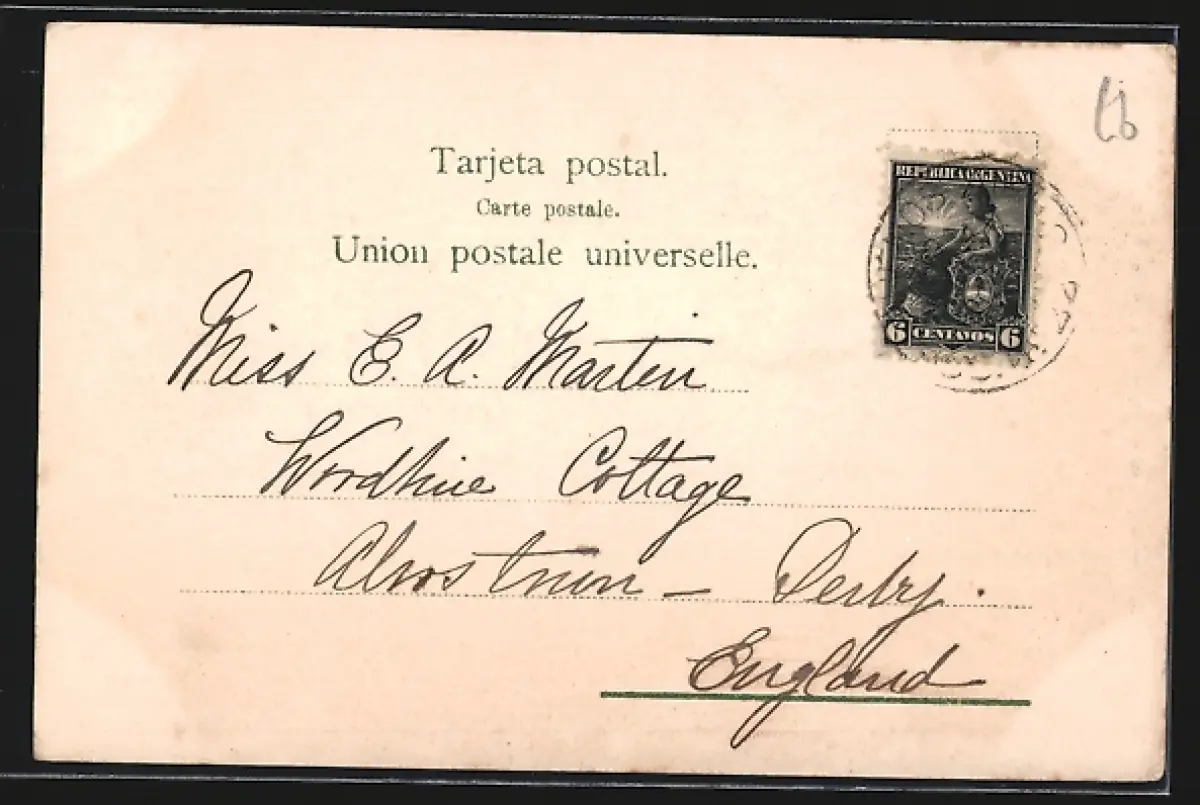 Tarjeta postal.
Carte postale.
Union postale universelle.
REPUBLICA ARGENTINA
6 CENTAVOS 6
Miss E. A. Martin
Woodbine Cottage
Derby.
England